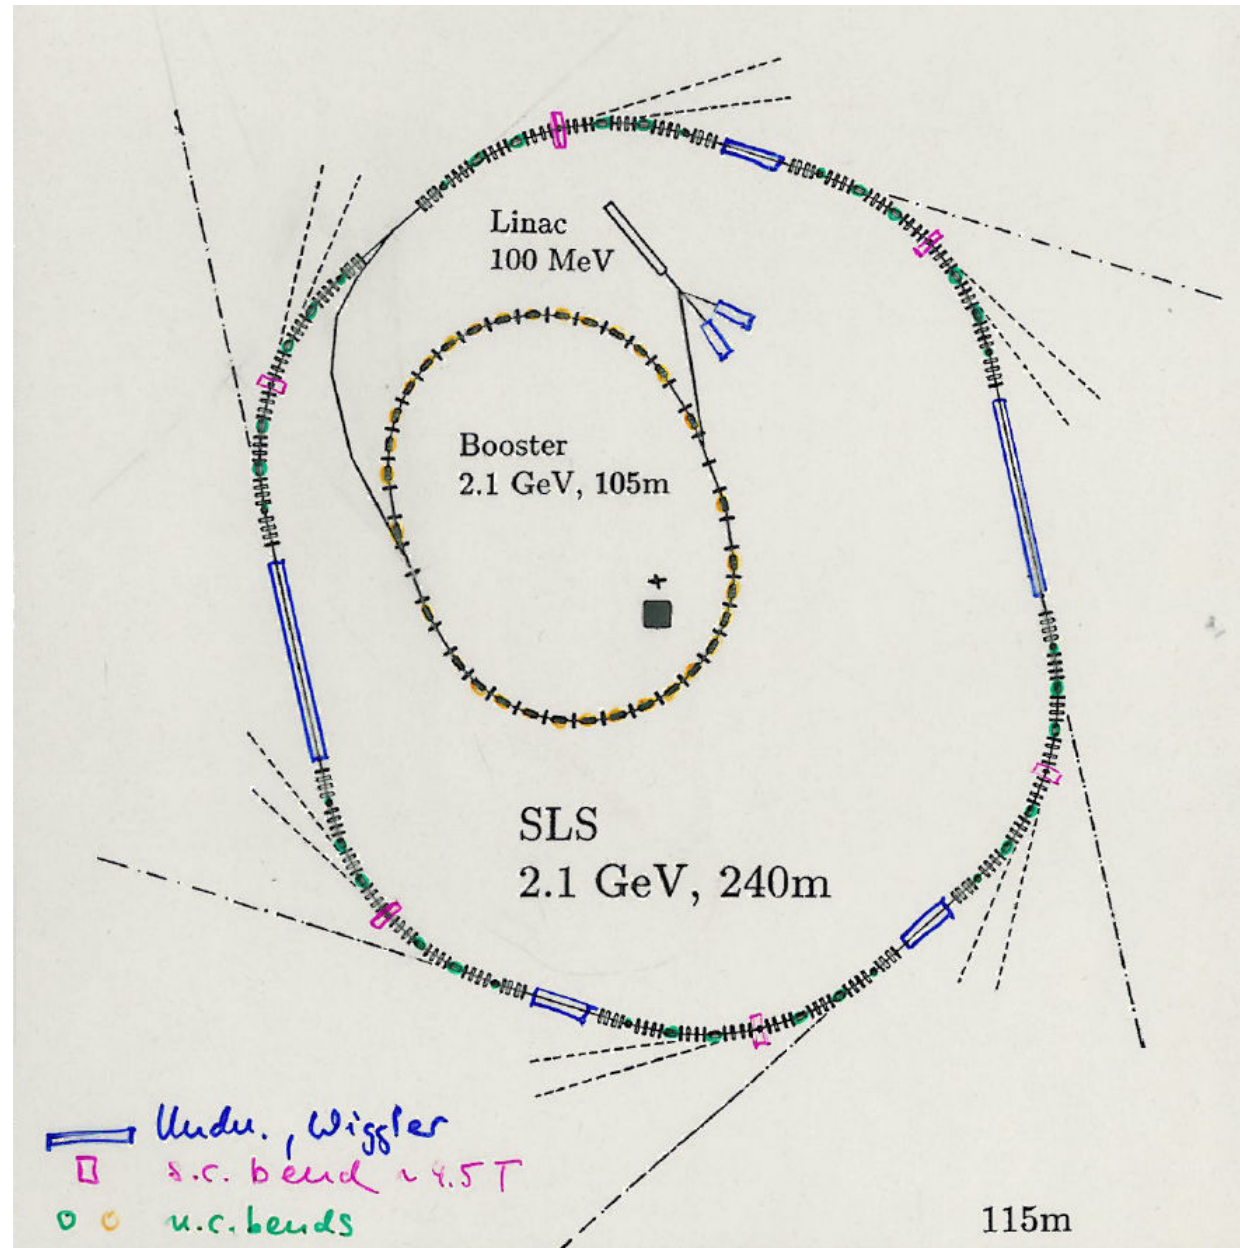 Linac
100 MeV
Booster
2.1 GeV, 105m
SLS
2.1 GeV, 240m
Undu., Wiggler
s.c. bend ~4.5 T
n.c. bends
115m